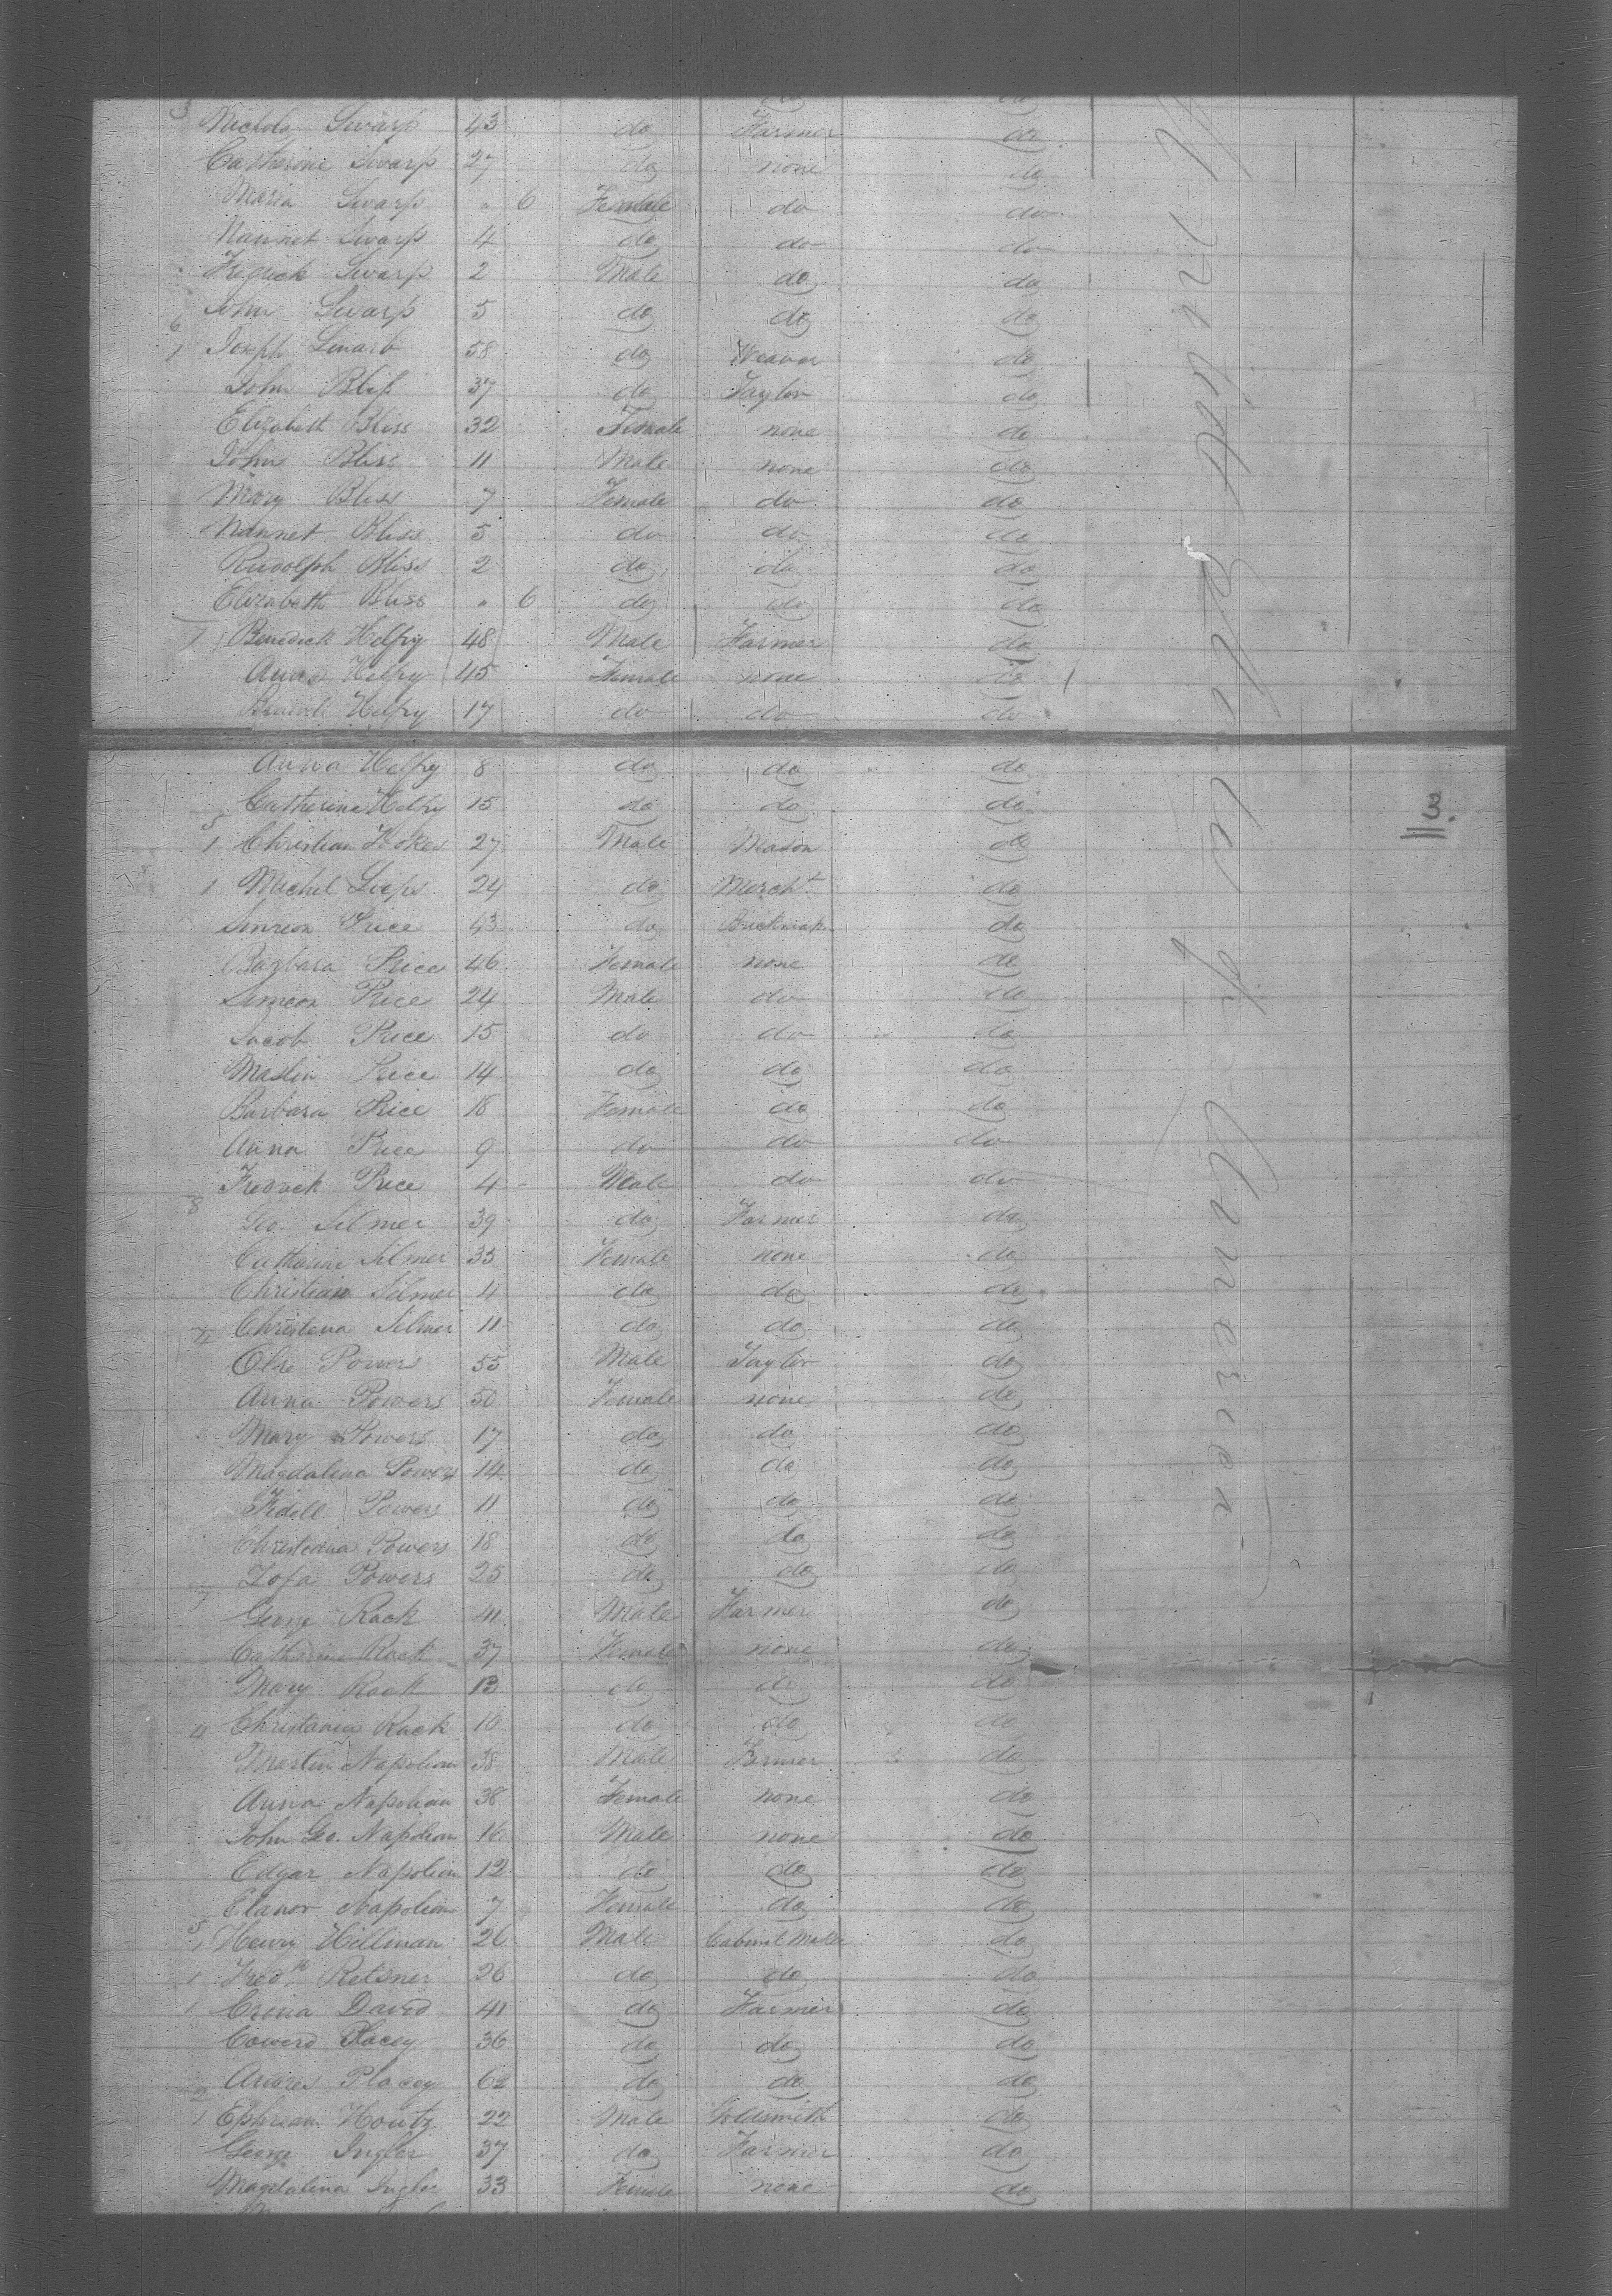 Nichola Swarp 43 do Farmer do
Catherine Swarp 27 do none do
Maria Swarp " 6 Female do do
Nannet Swarp 4 do do do
Fredick Swarp 2 Male do do
John Swarp 5 do do do
6
1 Joseph 58 do Weaver do
John Bliss 37 do Taylor do
Elizabeth Bliss 32 Female none do
John Bliss 11 Male none do
Mary Bliss 7 Female do do
Nannet Bliss 5 do do do
Rudolph Bliss 2 do do do
Elizabeth Bliss " 6 do do do
7 Benedick Helfry 48 Male Farmer do
Anna Helfry 45 Female none do
Helfry 17 do do do
Anna Helfry 8 do do do
Catherine Helfry 15 do do do
3.
5
1 Christian Hokes 27 Male Mason do
1 Michel 24 do Mercht do
Simeon Price 43 do Brickmak do
Barbara Price 46 Female none do
Simeon Price 24 Male do do
Jacob Price 15 do do do
Maslin Price 14 do do do
Barbara Price 18 Female do do
Anna Price 9 do do do
Fredrick Price 4 Male do do
8
Geo. Silmer 39 do Farmer do
Catharine Silmer 35 Female none do
Christian Silmer 4 do do do
4 Christena Silmer 11 do do do
Powers 55 Male Taylor do
Anna Powers 50 Female none do
Mary Powers 17 do do do
Magdalena Powers 14 do do do
Fidell Powers 11 do do do
Christenia Powers 18 do do do
Zofa Powers 25 do do do
7
George Rack 41 Male Farmer do
Catharine Rack 37 Female none do
Mary Rack 13 do do do
4 Christania Rack 10 do do do
Martin Napolion 38 Male Farmer do
Anna Napolion 38 Female none do
John Geo. Napolion 16 Male none do
Edgar Napolion 12 do do do
Elanor Napolion 7 Female do do
5
1 Henry Hillman 26 Male Cabinet Maker do
1 Fredk Retsner 26 do do do
1 David 41 do Farmer do
Placey 36 do do do
Placey 62 do do do
2
1 Ephream Houtz 22 Male Goldsmith do
George Ingler 37 do Farmer do
Magdalina Ingler 33 Female none do